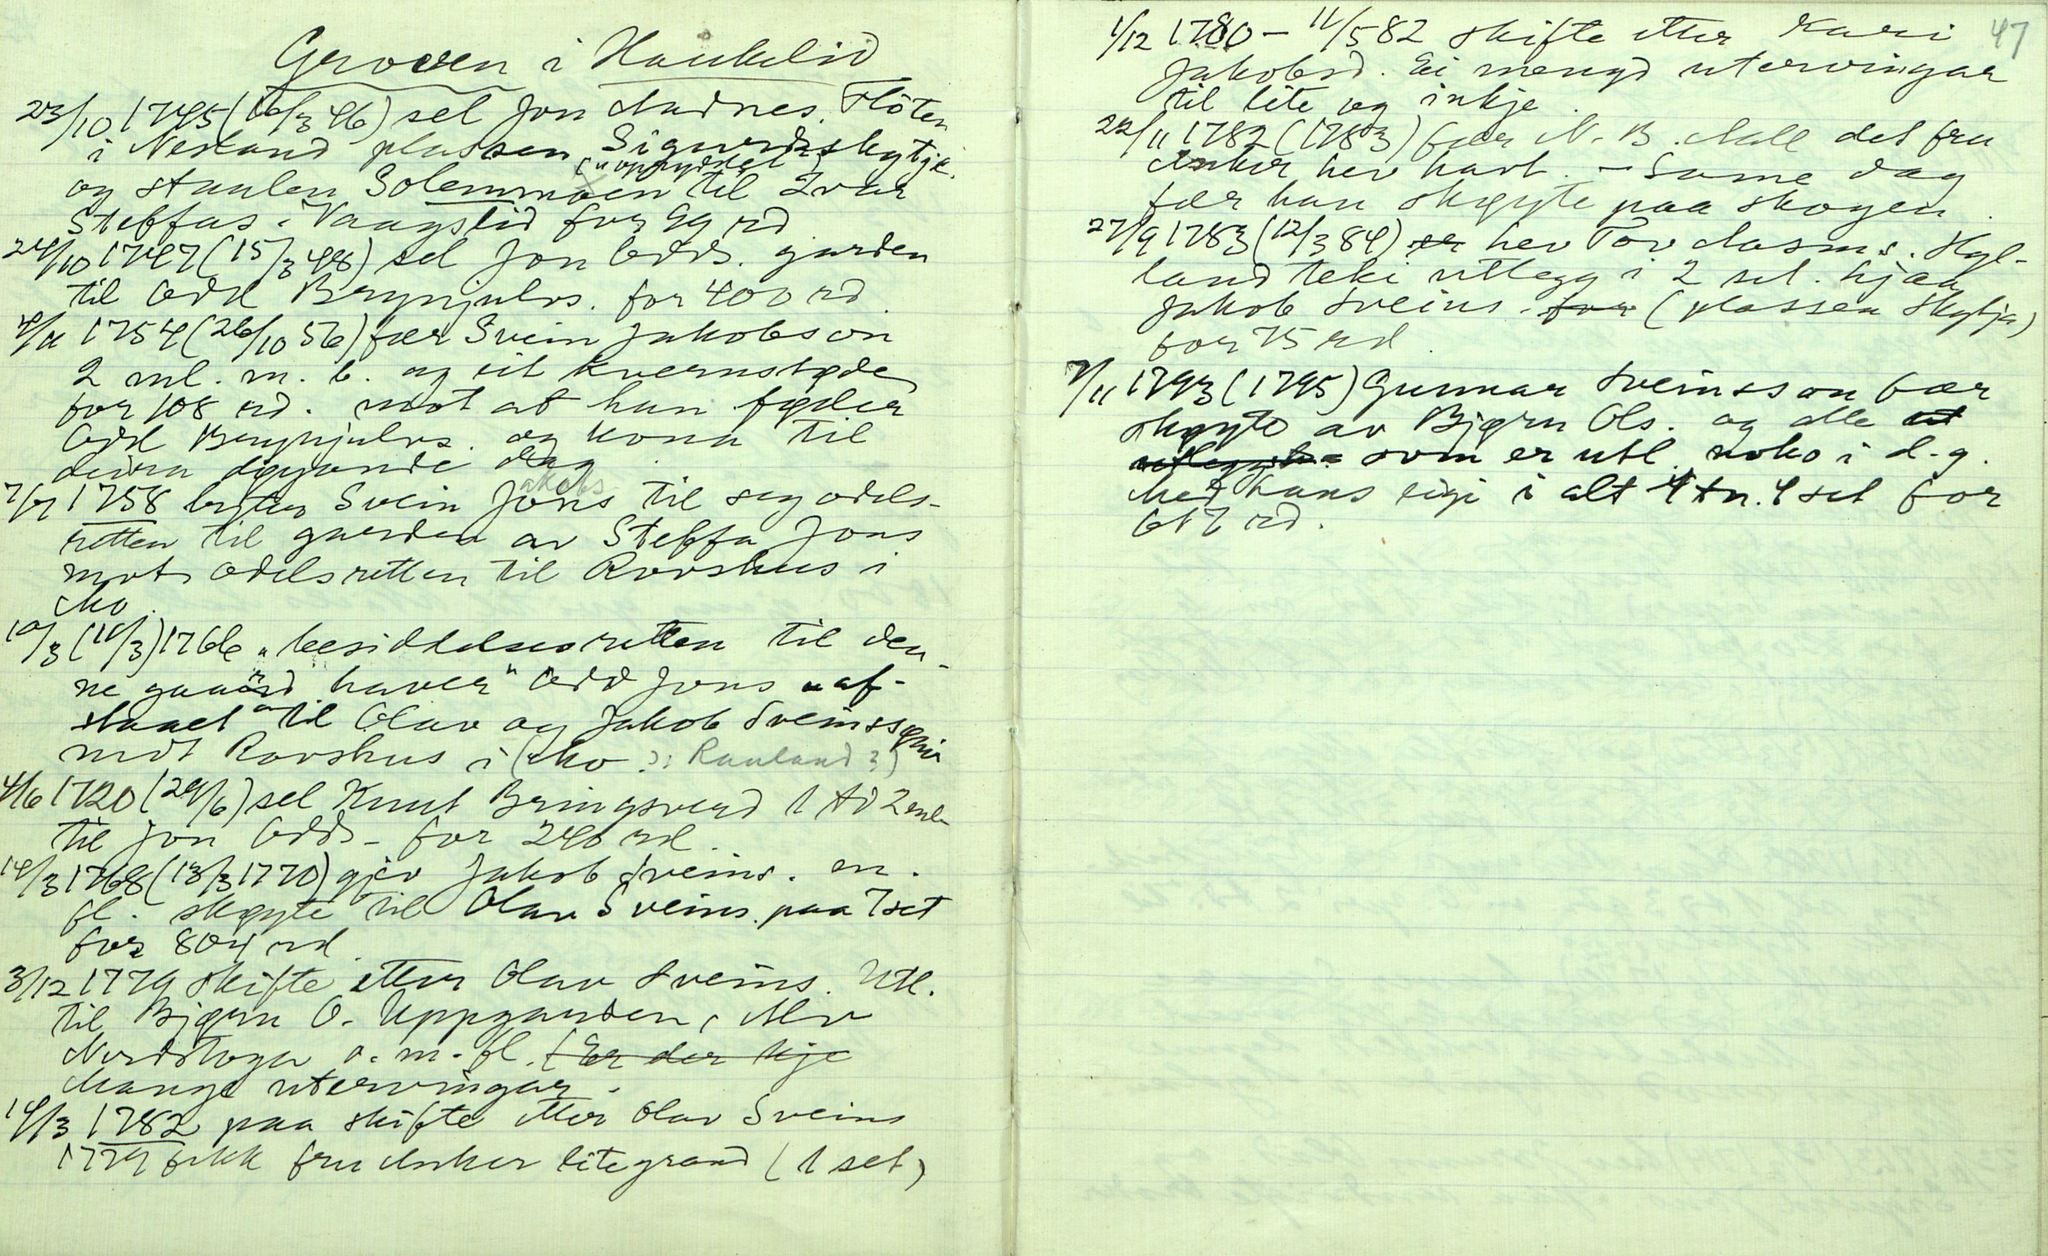 Groven i Haukelid
23/10 1745 (16/3 46) sel Jon Aadnes. Flöten
i Nesland plassen Sigurdskytja.
("uppryddet")
og staulen Solemmoen til Ivar
Steffas. i Vaagslid for 99 rd
24/10 1747 (15/3 48) sel Jon Odds. garden
til Odd Brynjulvs. for 400 rd
4/11 1754 (26/10 56) fær Svein Jakobson
2 ml. m. b. og eit kvernstøde
for 108 rd. mot at han føder
Odd Brynjulvs. og kona til
deira døyande dag.
akobs
7/7 1758 byter Svein Jons til seg odels-
retten til garden av Steffa Jons
mot odelsretten til Rovshus i
Mo.
10/3 (11/3) 1766 "besiddelsesretten til den-
ne gaard haver" Odd Jons "af-
staaet" til Olav og Jakob Sveinssøner
mot Rovshus i (Mo.?: Rauland?)
4/6 1720 (24/6) sel Knut Bringsverd 1 td 2 ml
til Jon Odds. for 240 rd.
14/3 1768 (13/3 1770) gjev Jakob Sveins. m.
fl. skøyte til Olav Sveins. paa 7 set
for 804 rd
3/12 1779 skifte etter Olav Sveins. Utl.
til Bjørn O. Uppgarden, Alv
Nordstoga o. m. fl. (Er der kje
Mange utervingar.
14/3 1782 paa skifte etter Olav Sveins
1779 fekk fru Anker litegrand (1 set)
47
1/12 1780 – 11/5 82 skifte etter Kari
Jakobsd. Ei mengd utervingar
til lite og inkje.
22/11 1782 (1783) fær N. B. Aall det fru
Anker hev havt. – Same dag
fær han skøyte paa skogen.
27/9 1783 (12/3 84) er hev Tov Aasms. Hyl-
land teki utlegg i 2 set. hjaa
Jakob Sveins. for (plassen Skytja)
for 75 rd.
7/11 1793 (1795) Gunnar Sveinsson fær
skøyte av Bjørn Ols. og alle ut
som er utl. noko i d. g.
Med hans eige i alt 4 tn. 4 set for
617 rd.